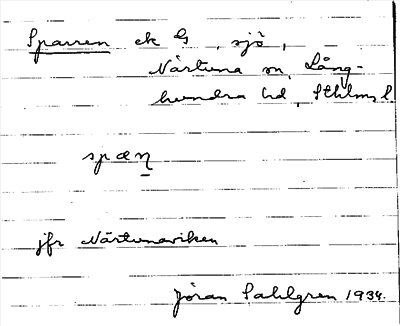 Sparren ek G, sjö,
Närtuna sn, Lång-
hundra hd, Sthlms l
spæɳ
jfr Närtunaviken
Jöran Sahlgren 1934.